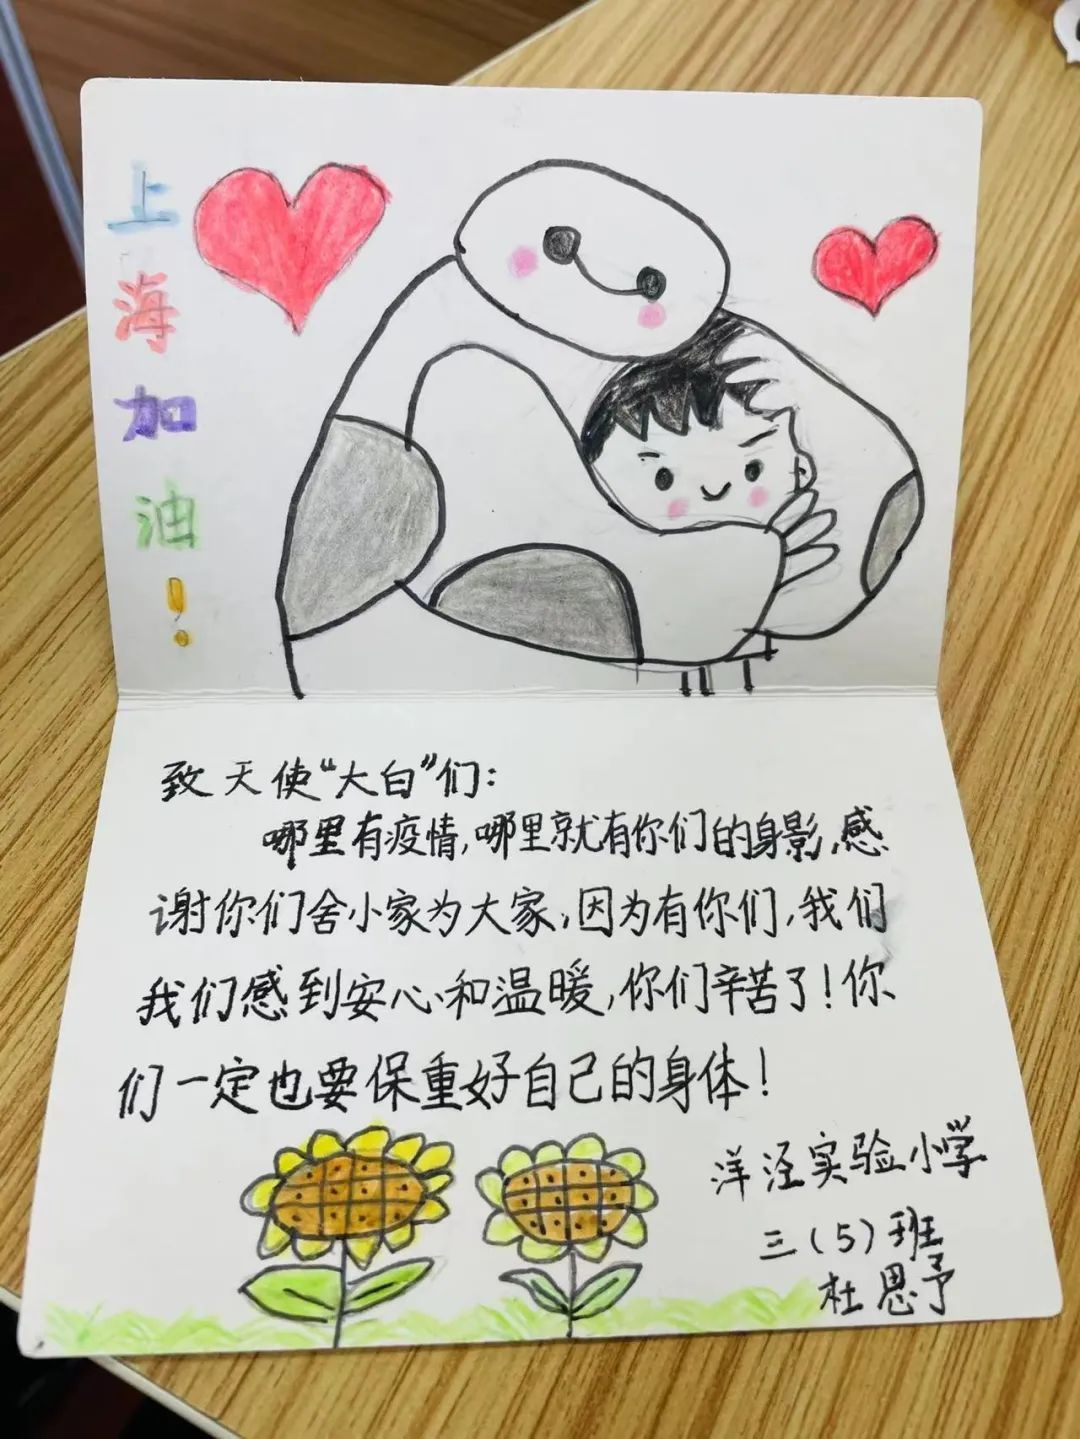 上海加油!
致天使“大白”们:
哪里有疫情,哪里就有你们的身影,感
谢你们舍小家为大家,因为有你们,我们
我们感到安心和温暖,你们辛苦了!你
们一定也要保重好自己的身体!
洋泾实验小学
三(5)班
杜思予